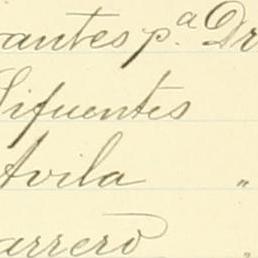 antes pª Dr
Sifuentes
Avila "
arrero "